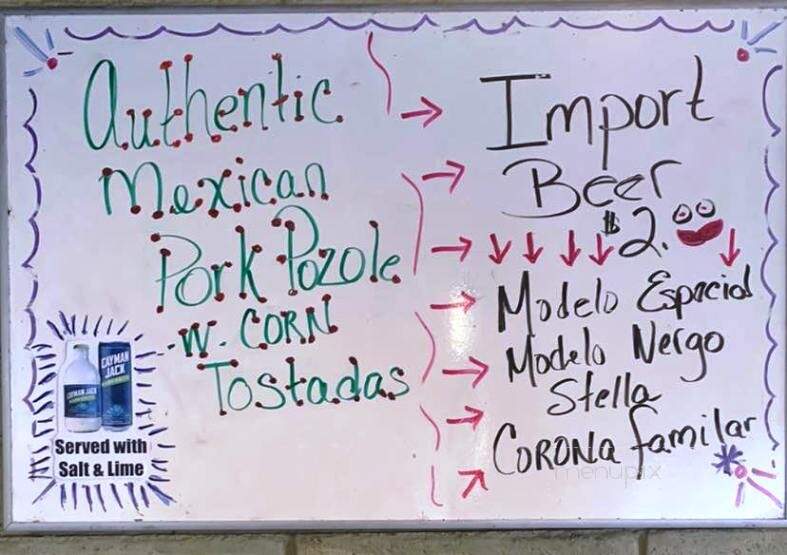 Authentic
Mexican
Pork Pozole
-W. CORN
Tostadas
CAYMAN
JACK
CAYMAN JACK
Served with
Salt & Lime
Import
Beer
$2.
Modelo Especial
Modelo Nergo
Stella
CORONA familar
menupix